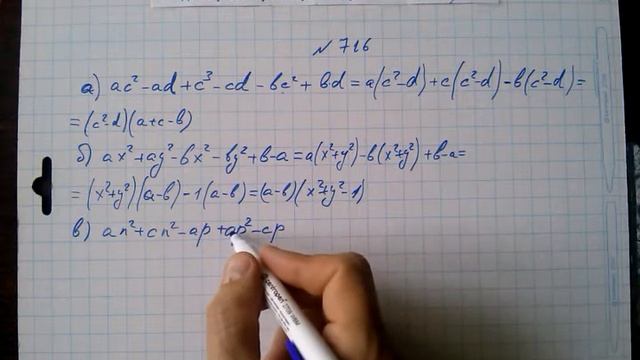 № 716
а) ac²-ad+c³-cd-bc²+bd=a(c²-d)+c(c²-d)-b(c²-d)=
=(c²-d)(a+c-b)
б) ax²+ay²-bx²-by²+b-a=a(x²+y²)-b(x²+y²)+b-a=
=(x²+y²)(a-b)-1(a-b)=(a-b)(x²+y²-1)
в) an²+cn²-ap+ap²-cp